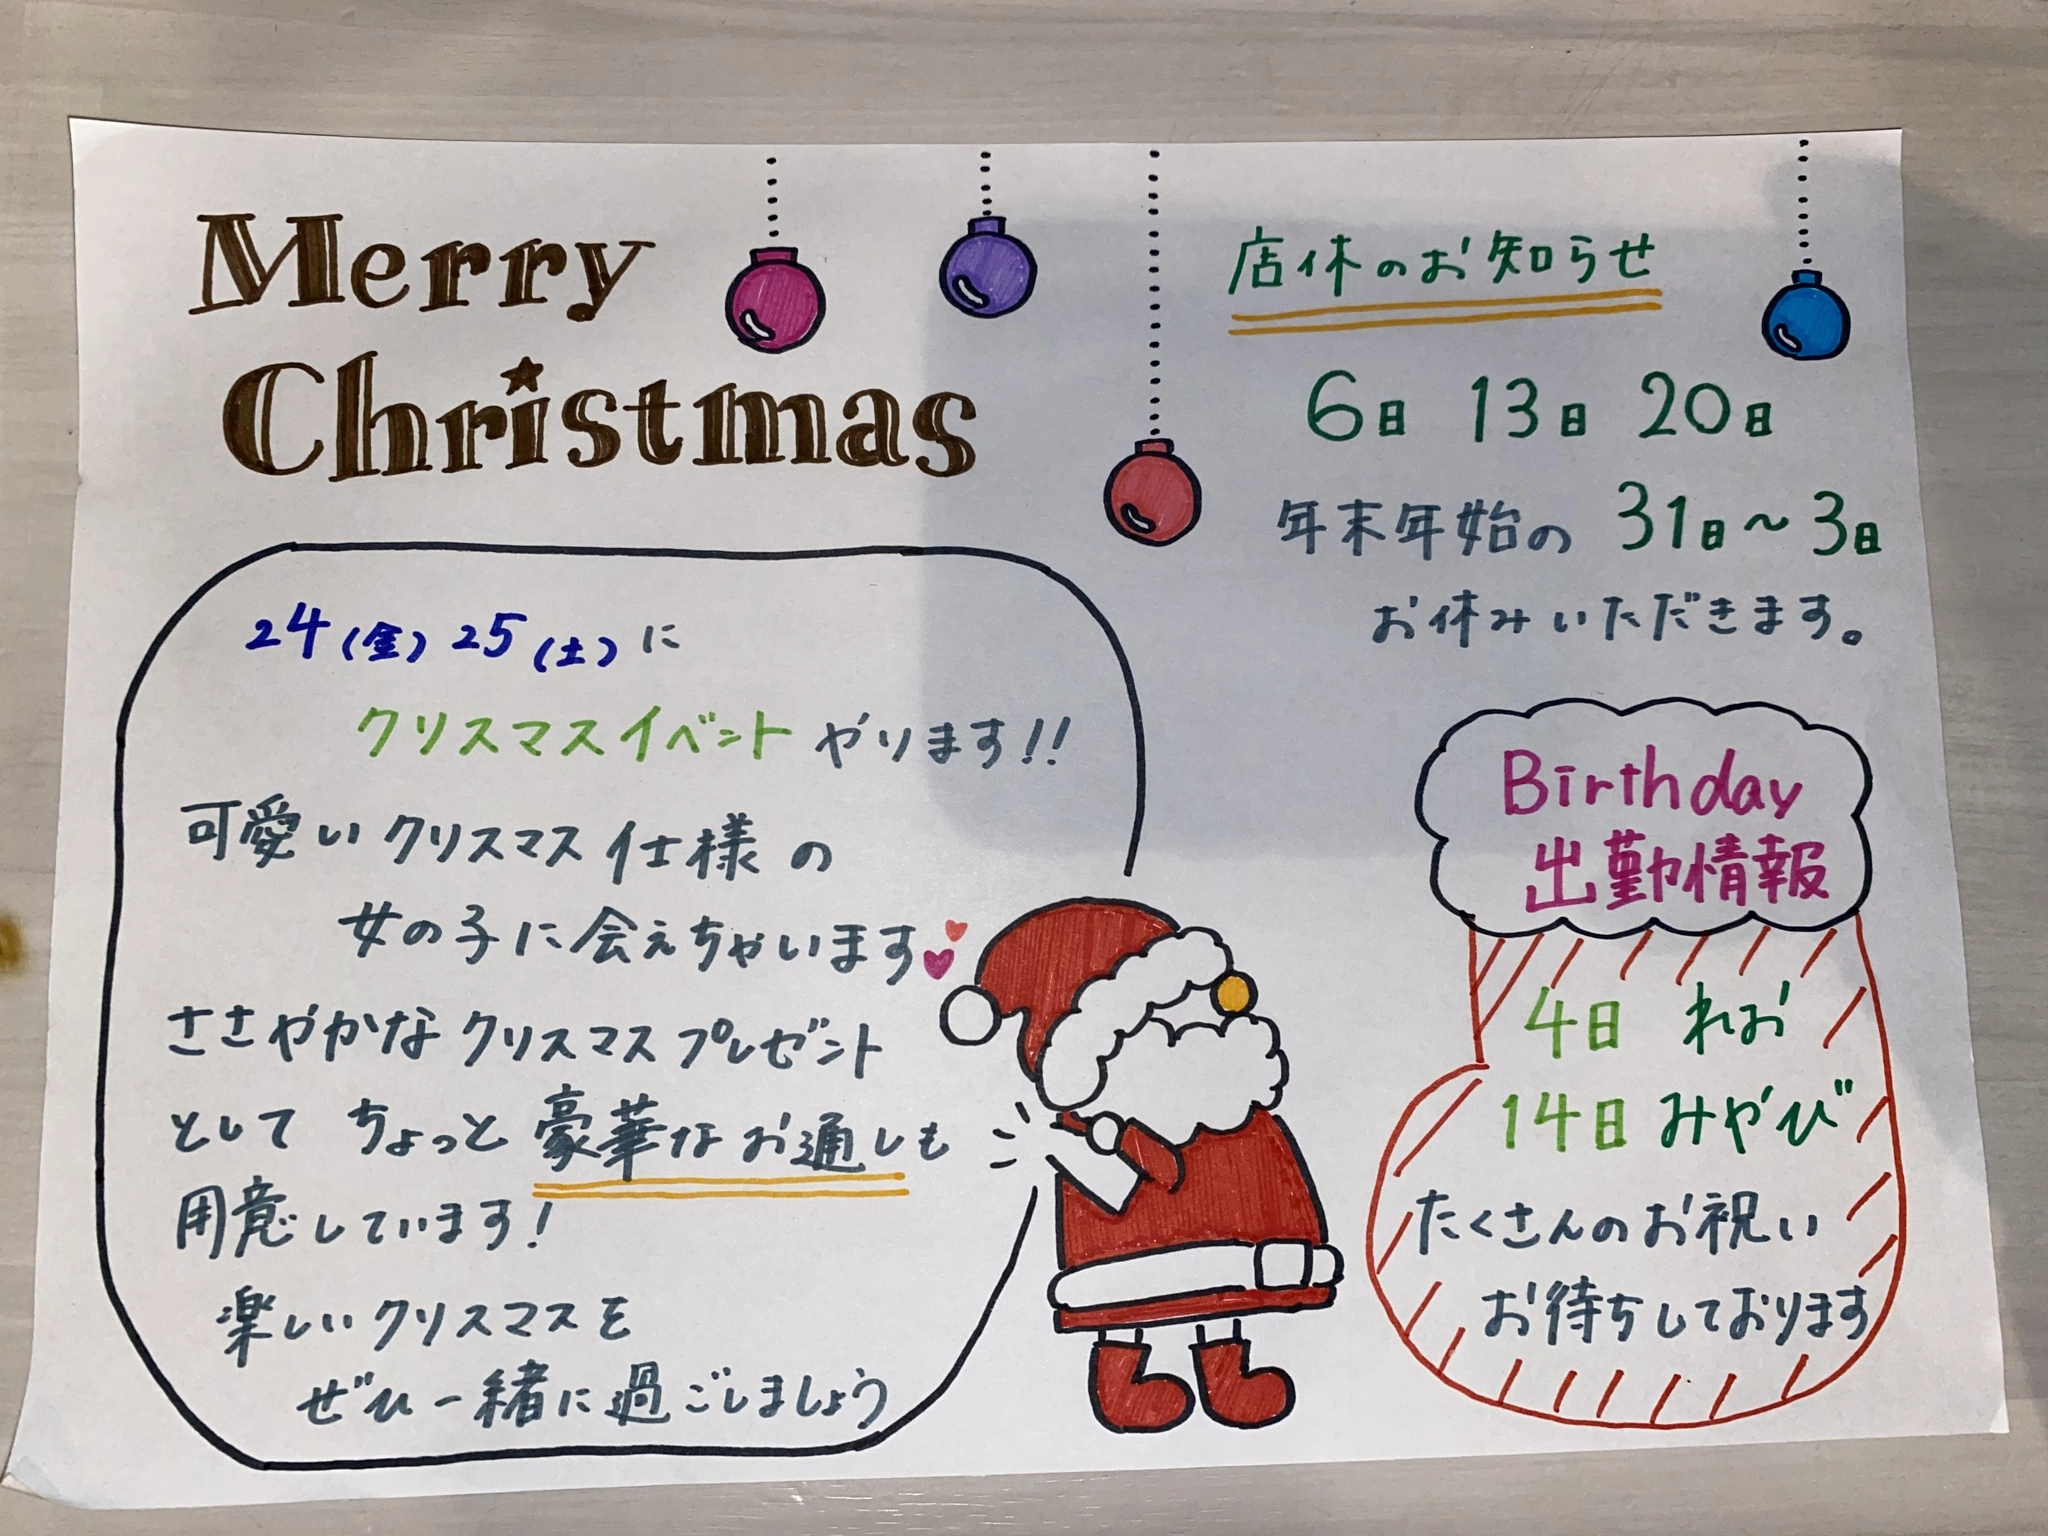 Merry
Christmas
店休のお知らせ
6日 13日 20日
年末年始の 31日～3日
お休みいただきます。
24(金) 25(土)に
クリスマスイベント やります!!
可愛いクリスマス仕様の
女の子に会えちゃいます
ささやかなクリスマスプレゼント
として ちょっと豪華なお通しも
用意しています!
楽しいクリスマスを
ぜひ一緒に過ごしましょう
Birthday
出勤情報
4日 れお
14日 みやび
たくさんのお祝い
お待ちしております